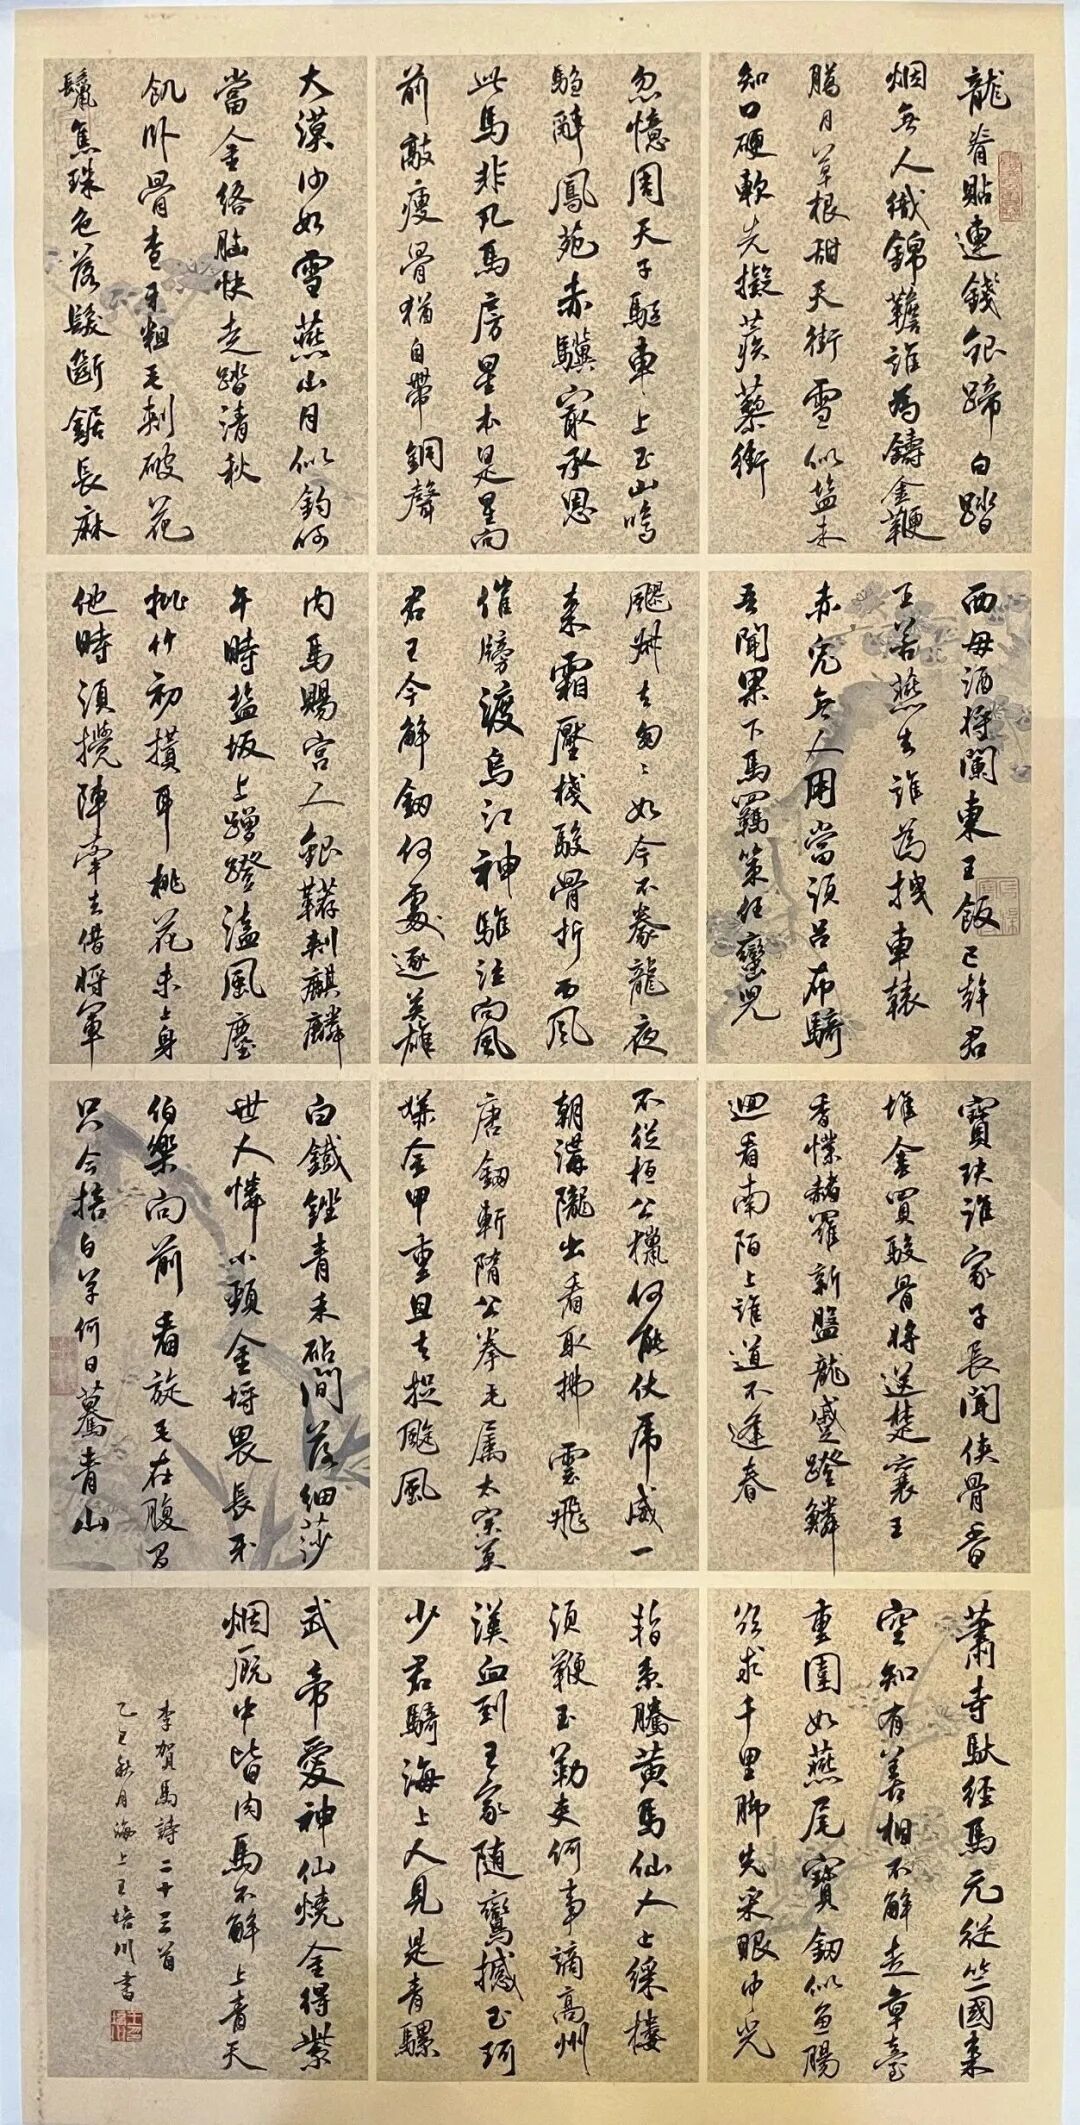 龍脊貼連錢銀蹄白踏
烟無人織錦韂誰為鑄金鞭
臘月草根甜天街雪似鹽未
知口硬軟先擬蒺藜銜
忽憶周天子驅車上玉山鳴
騶辭鳳苑赤驥最承恩
此馬非凡馬房星本是星向
前敲瘦骨猶自帶銅聲
大漠沙如雪燕山月似鈎何
當金絡腦快走踏清秋
飢卧骨查牙粗毛刺破花
鬣焦珠色落髮斷鋸長麻
西母酒將闌東王飯已幹君
王若燕去誰為拽車轅
赤兔無人用當須呂布騎
吾聞果下馬羈策任蠻兒
飂叔去匆匆如今不豢龍夜
來霜壓棧駿骨折西風
催榜渡烏江神騅泣向風
君王今解劒何處逐英雄
内馬賜宮人銀韉刺麒麟
午時鹽坂上蹭蹬溘風塵
批竹初攢耳桃花未上身
他時須攪陣牽去借將軍
寶玦誰家子長聞俠骨香
堆金買駿骨將送楚襄王
香幞赭羅新盤龍蹙蹬鱗
迴看南陌上誰道不逢春
不從桓公獵何能伏虎威一
朝溝隴出看取拂雲飛
唐劒斬隋公拳毛屬太宗莫
嫌金甲重且去捉颷風
白鐵銼青禾砧間落細莎
世人憐小頸金埒畏長牙
伯樂向前看旋毛在腹間
只今掊白草何日驀青山
蕭寺馱經馬元從竺國來
空知有善相不解走章臺
重圍如燕尾寶劒似魚腸
欲求千里脚先采眼中光
暫系騰黄馬仙人上綵樓
須鞭玉勒吏何事謫高州
漢血到王家隨鸞撼玉珂
少君騎海上人見是青騾
武帝愛神仙燒金得紫
烟厩中皆肉馬不解上青天
李賀馬詩二十三首
乙巳秋月海上王培川書